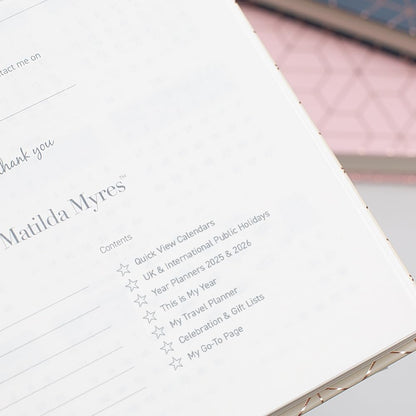 tact me on
thank you
Matilda Myres™
Contents
Quick View Calendars
UK & International Public Holidays
Year Planners 2025 & 2026
This is My Year
My Travel Planner
Celebration & Gift Lists
My Go-To Page